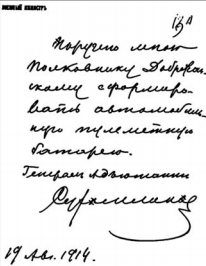 ВОЕННЫЙ МИНИСТРЪ
Поручено мною
Полковнику Добржан-
скому сформиро-
вать автомобиль-
ную пулеметную
батарею.
Генерал Адъютант
Сухомлинов
19 Авг. 1914.